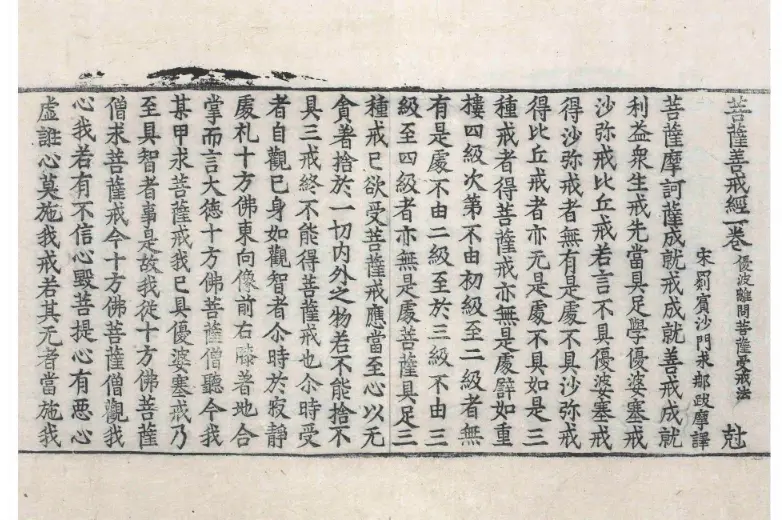 菩薩善戒經一卷 優波離問菩薩受戒法 尅
宋罽賓沙門求那跋摩譯
菩薩摩訶薩成就戒成就善戒成就
利益衆生戒先當具足學優婆塞戒
沙弥戒比丘戒若言不具優婆塞戒
得沙弥戒者無有是處不具沙弥戒
得比丘戒者亦无是處不具如是三
種戒者得菩薩戒亦無是處譬如重
樓四級次第不由初級至二級者無
有是處不由二級至於三級不由三
級至四級者亦無是處菩薩具足三
種戒已欲受菩薩戒應當至心以无
貪著捨於一切内外之物若不能捨不
具三戒終不能得菩薩戒也尒時受
者自觀已身如觀智者尒時於寂靜
處礼十方佛東向像前右膝著地合
掌而言大德十方佛菩薩僧聽今我
某甲求菩薩戒我已具優婆塞戒乃
至具智者事是故我從十方佛菩薩
僧求菩薩戒今十方佛菩薩僧觀我
心我若有不信心毀菩提心有惡心
虛誑心莫施我戒若其无者當施我